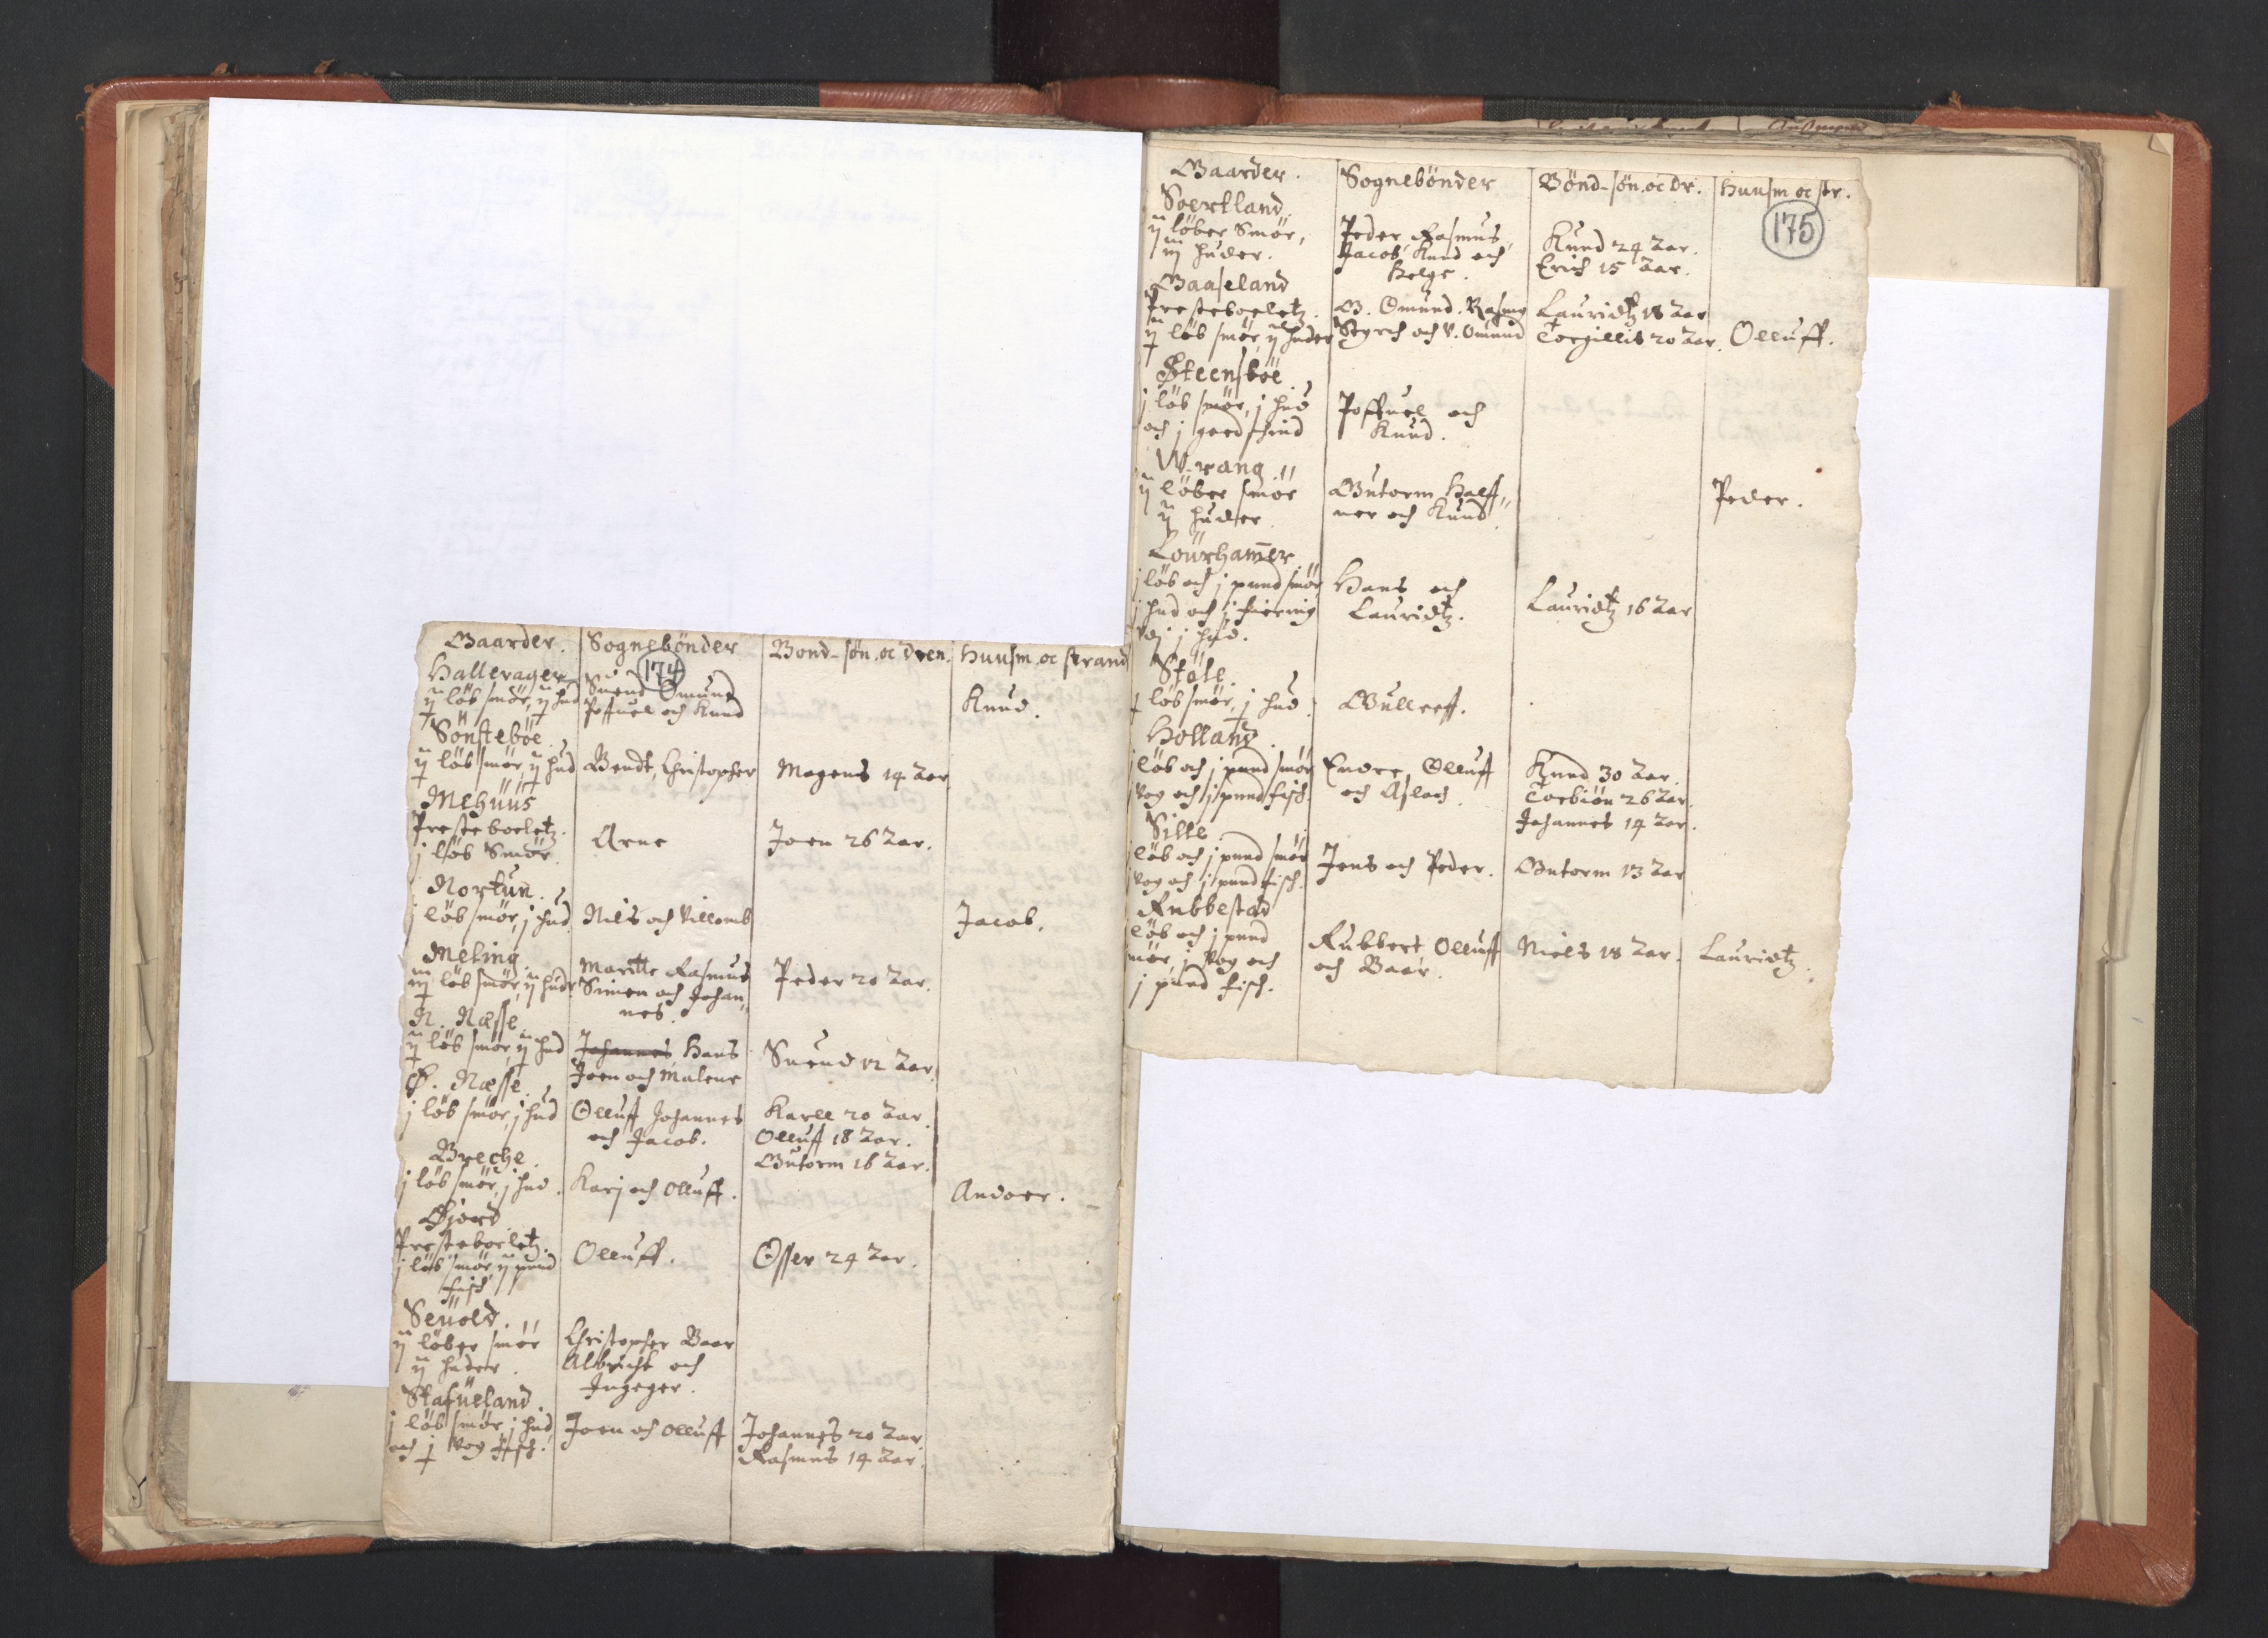 Gaarder. Sognebönder Bond-sön.oc dren. Huusm.oc strand
174
Hallerager
ij löb smör, ij hud
Suend Omund
Poffuel och Knud
Knud.
Sönsteböe.
ij löb smör, ij hud Bendt, Christopher Mogens 14 Aar
Mehuus
Presteboeletz.
j löb Smör.
Arne Joen 26 Aar.
Nortun.
j löb smör, j hud Nils och Villomb Jacob.
Meling
iij löb smör, ij huder
Maritte Rasmus
Simen och Johan„
nes.
Peder 20 Aar.
N. Næsse.
ij löb smör, ij hud
Johannes, Hans
Joen och Malene
Suend 12 Aar.
Ø. Næsse.
j löb smör, j hud
Olluff Johannes
och Jacob.
Karll 20 Aar.
Olluff 18 Aar.
Gutorm 16 Aar.
Breche.
j löb smör, j hud. Karj och Olluff. Andoer.
Øjord
Presteboeletz.
j löb smör ij pund
fisch
Olluff. Osser 24 Aar.
Seüold.
ij löber smör
ij huder.
Christopher Baar
Albricht och
Ingeger.
Stafüeland.
j löb smör, j hud
och j Vog fisch.
Joen och Olluff
Johannes 20 Aar.
Rasmus 14 Aar.
Gaarder. Sognebönder Bönd-sön.oc Dr. Huusm oc str.
175
Soertland.
ij löber Smör,
iij huder.
Peder, Rasmus,
Jacob, Knud och
Helge.
Knud 24 Aar.
Erich 15 Aar.
Gaaseland
Presteboeletz.
ij löb smör, ij huder
G. Omund. Rasmus
och V. Omund
Lauridtz 18 Aar
Torgillis 20 Aar.
Olluff.
Steensböe.
j löb smör, j hud
och j geedschind
Poffuel och
Knud.
W-rang.
ij löber smör
ij huder.
Gutorm Half„
uor och Knud.
Peder.
Löurhamer.
j löb och j pund smör
j hud och j fiering
Vdj j hud.
Hans och
Lauridtz.
Lauridtz 16 Aar
Stöle.
löb smör, j hud. Gulleeff.
Holland.
j löb och j pund smör
j Vog och j pund fisch.
Endre, Olluff
och Aslach.
Knud 30 Aar.
Torbiön 26 Aar.
Johannes 14 Aar.
Sille.
löb och j pund smör
j Vog och j pund fisch.
Jens och Peder. Gutorm 13 Aar
Rubbestad
löb och j pund
smör, j Vog och
j pund fisch.
Rubbert Olluff
och Baar.
Niels 18 Aar.
Lauridtz.